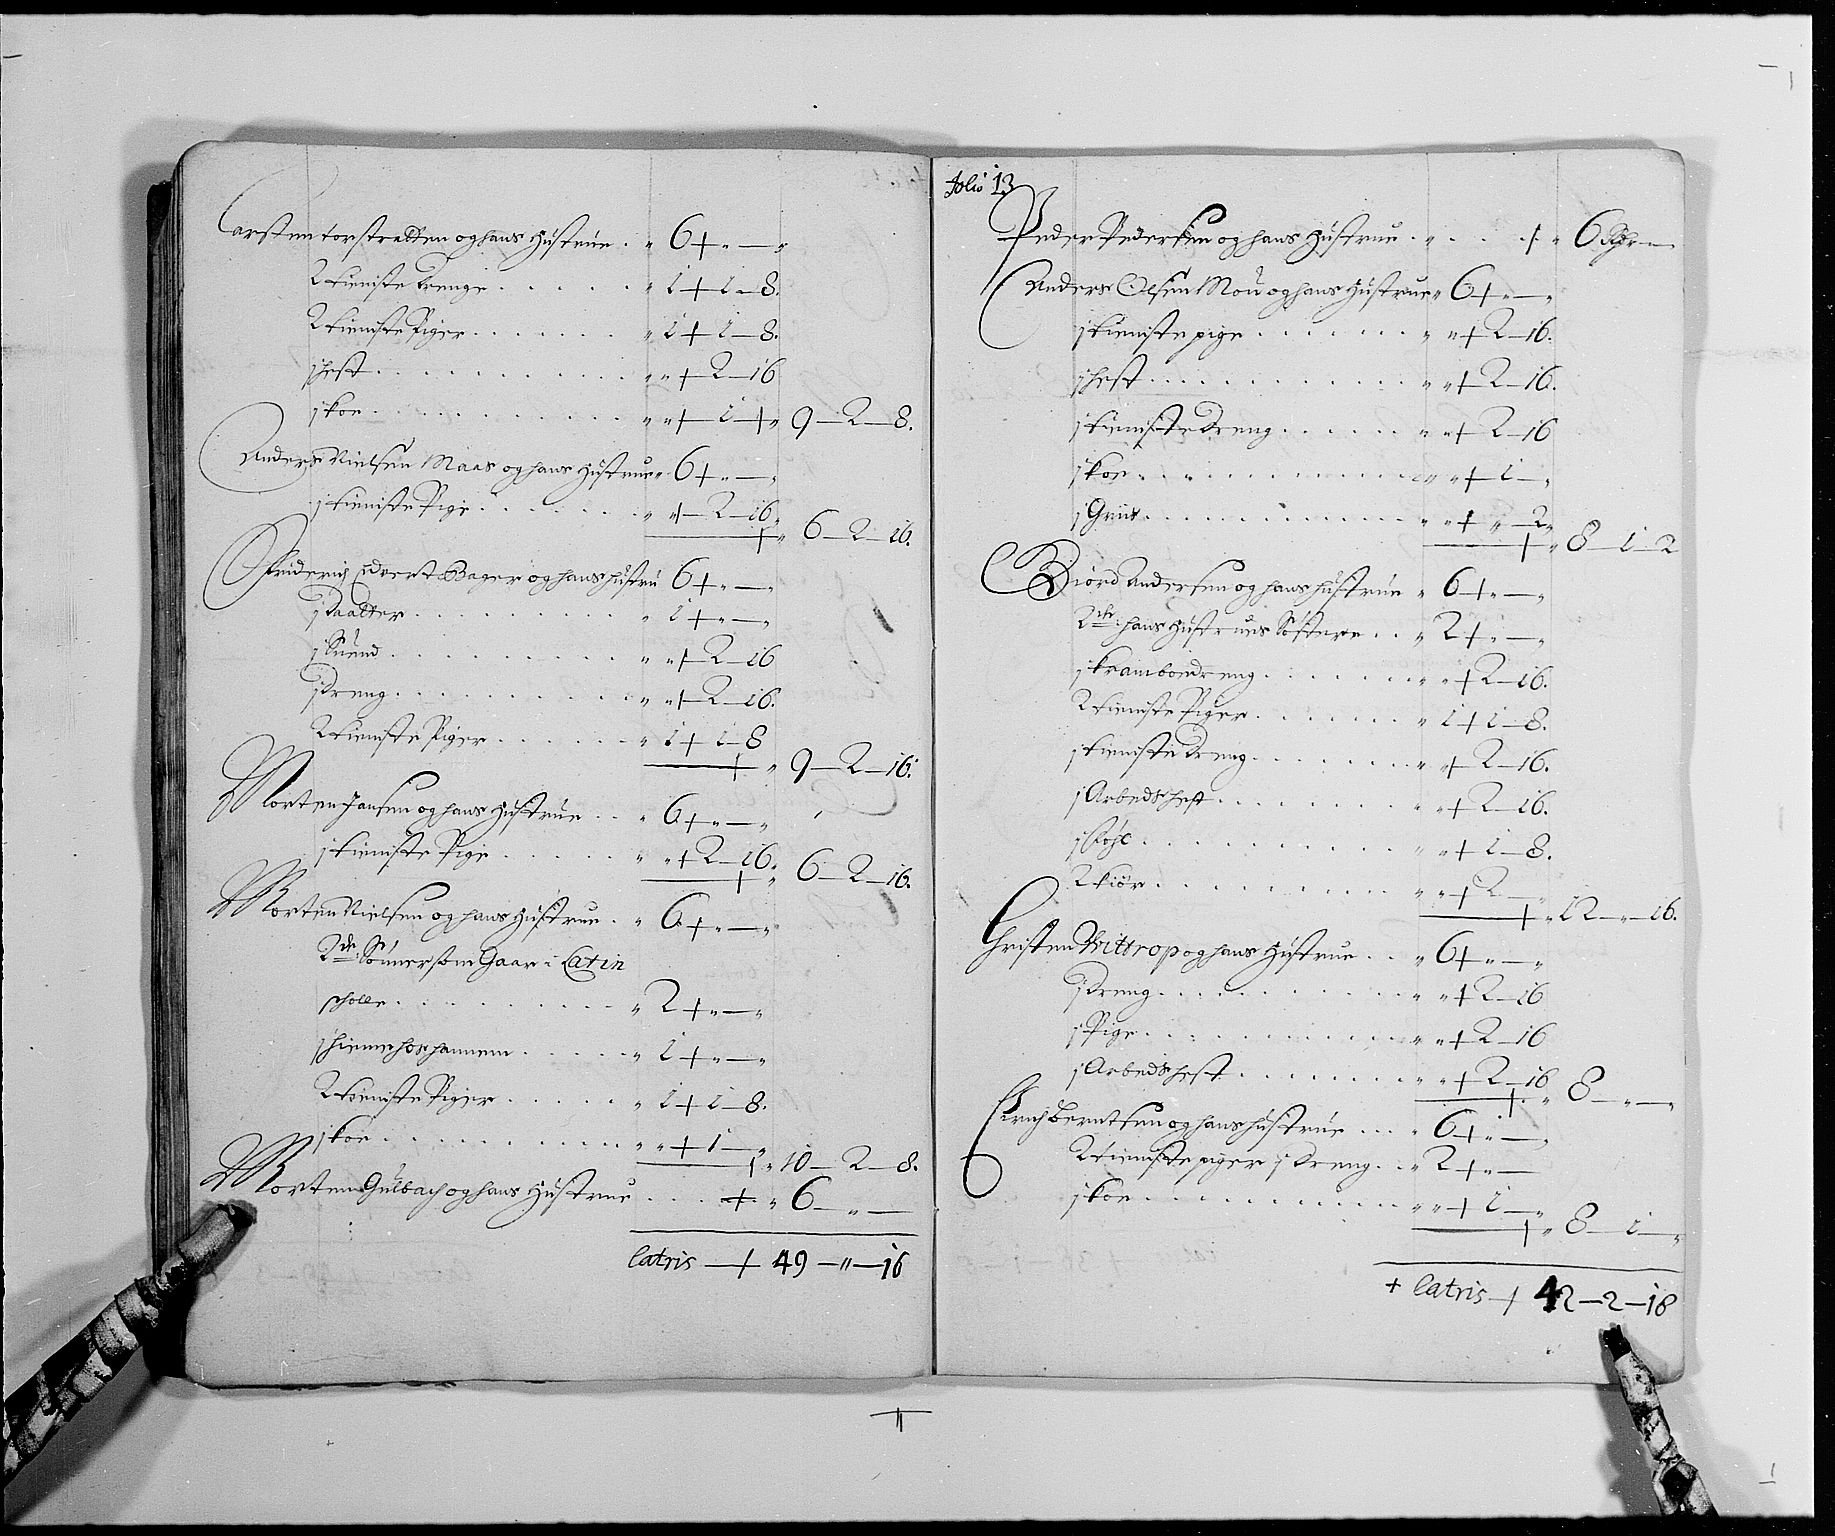 Carsten torstretten og hans Hustrue . . „ 6 + „ — „
2 tieniste Drenge . . . . . „ 1 + 1 – 8.
2 tieniste Piger . . . . . „ 1 + 1 — 8.
1 hest . . . . . „ „ + 2 — 16
1 koe . . . . . „ „ + 1 + „ 9 — 2 — 8.
Anders Nielsen Maas og hans Hustrue „ 6 + „ — „
1 tieniste Pige . . . . . „ „ + 2 — 16 „
+ „ 6 — 2 — 16.
Friderich Edvert Bager og hans hustru 6 + „ — „
1 Daatter . . . . . „ 1 + „ — „
1 Suend . . . . . „ „ + 2 — 16
1 dreng . . . . . „ „ + 2 — 16.
2 tieniste Piger . . . . . „ 1 + 1 – 8
+ „ 9 — 2 — 16.
Morten Jansen og hans Hustrue . . „ 6 + „ — „
1 tieniste Pige . . . . . „ „ + 2 — 16 „
+ „ 6 — 2 — 16.
Morten Nielsen og hans Hustrue . . „ 6 + „ — „
2de Sönner som Gaar i Latin
scholle . . . . . „ 2 + „ — „
1 hieme hos hannem . . . . . „ 1 + „ — „
2 tieniste Piger . . . . . „ 1 + 1 – 8.
1 koe . . . . . „ „ + 1 — „
+ „ 10 — 2 — 8.
Morten Gulbach og hans Hustrue . . . + „ 6 — „ —
latris — + 49 — „ — 16
folio 13
Peder Pedersen og hans Hustrue . „ . . + „ 6 Rdr —
Anders Olsen Mou og hans Hustrue „ 6 + „ — „
1 tieniste pige . . . . . „ „ + 2 — 16.
1 hest . . . . . „ „ + 2 — 16.
1 tieniste Dreng . . . . . „ „ + 2 — 16
1 koe . . . . . „ „ + 1 — „
1 Griis . . . . . „ „ + „ — 2 „
+ „ 8 — 1 — 2
Biörd Andersen og hans hustrue „ 6 + „ — „
2de hans Hustrues Söstere . . „ 2 + „ — „
1 kramboedreng . . . . . „ „ + 2 — 16.
2 tieniste Piger . . . . . „ 1 + 1 — 8.
1 tieniste Dreng . . . . . „ „ + 2 — 16.
1 Arbeds hest . . . . . „ „ + 2 — 16.
1 Föhl . . . . . „ „ + 1 — 8.
2 kiör . . . . . „ „ + 2 — „
+ „ 12 — „ — 16.
Christen Wittrop og hans Hustrue . . „ 6 + „ — „
1 dreng . . . . . „ „ + 2 — 16
1 Pige . . . . . „ „ + 2 — 16
1 Arbeds hest . . . . . „ „ + 2 — 16
+ „ 8 — „ — „
Erich berntsen og hans hustrue . . . „ 6 + „ — „
2 tieniste piger 1 Dreng . . „ 2 + „ —
1 koe . . . . . „ „ + 1 — „
+ „ 8 — 1 — „
+ latris — + 42 — 2 — 18